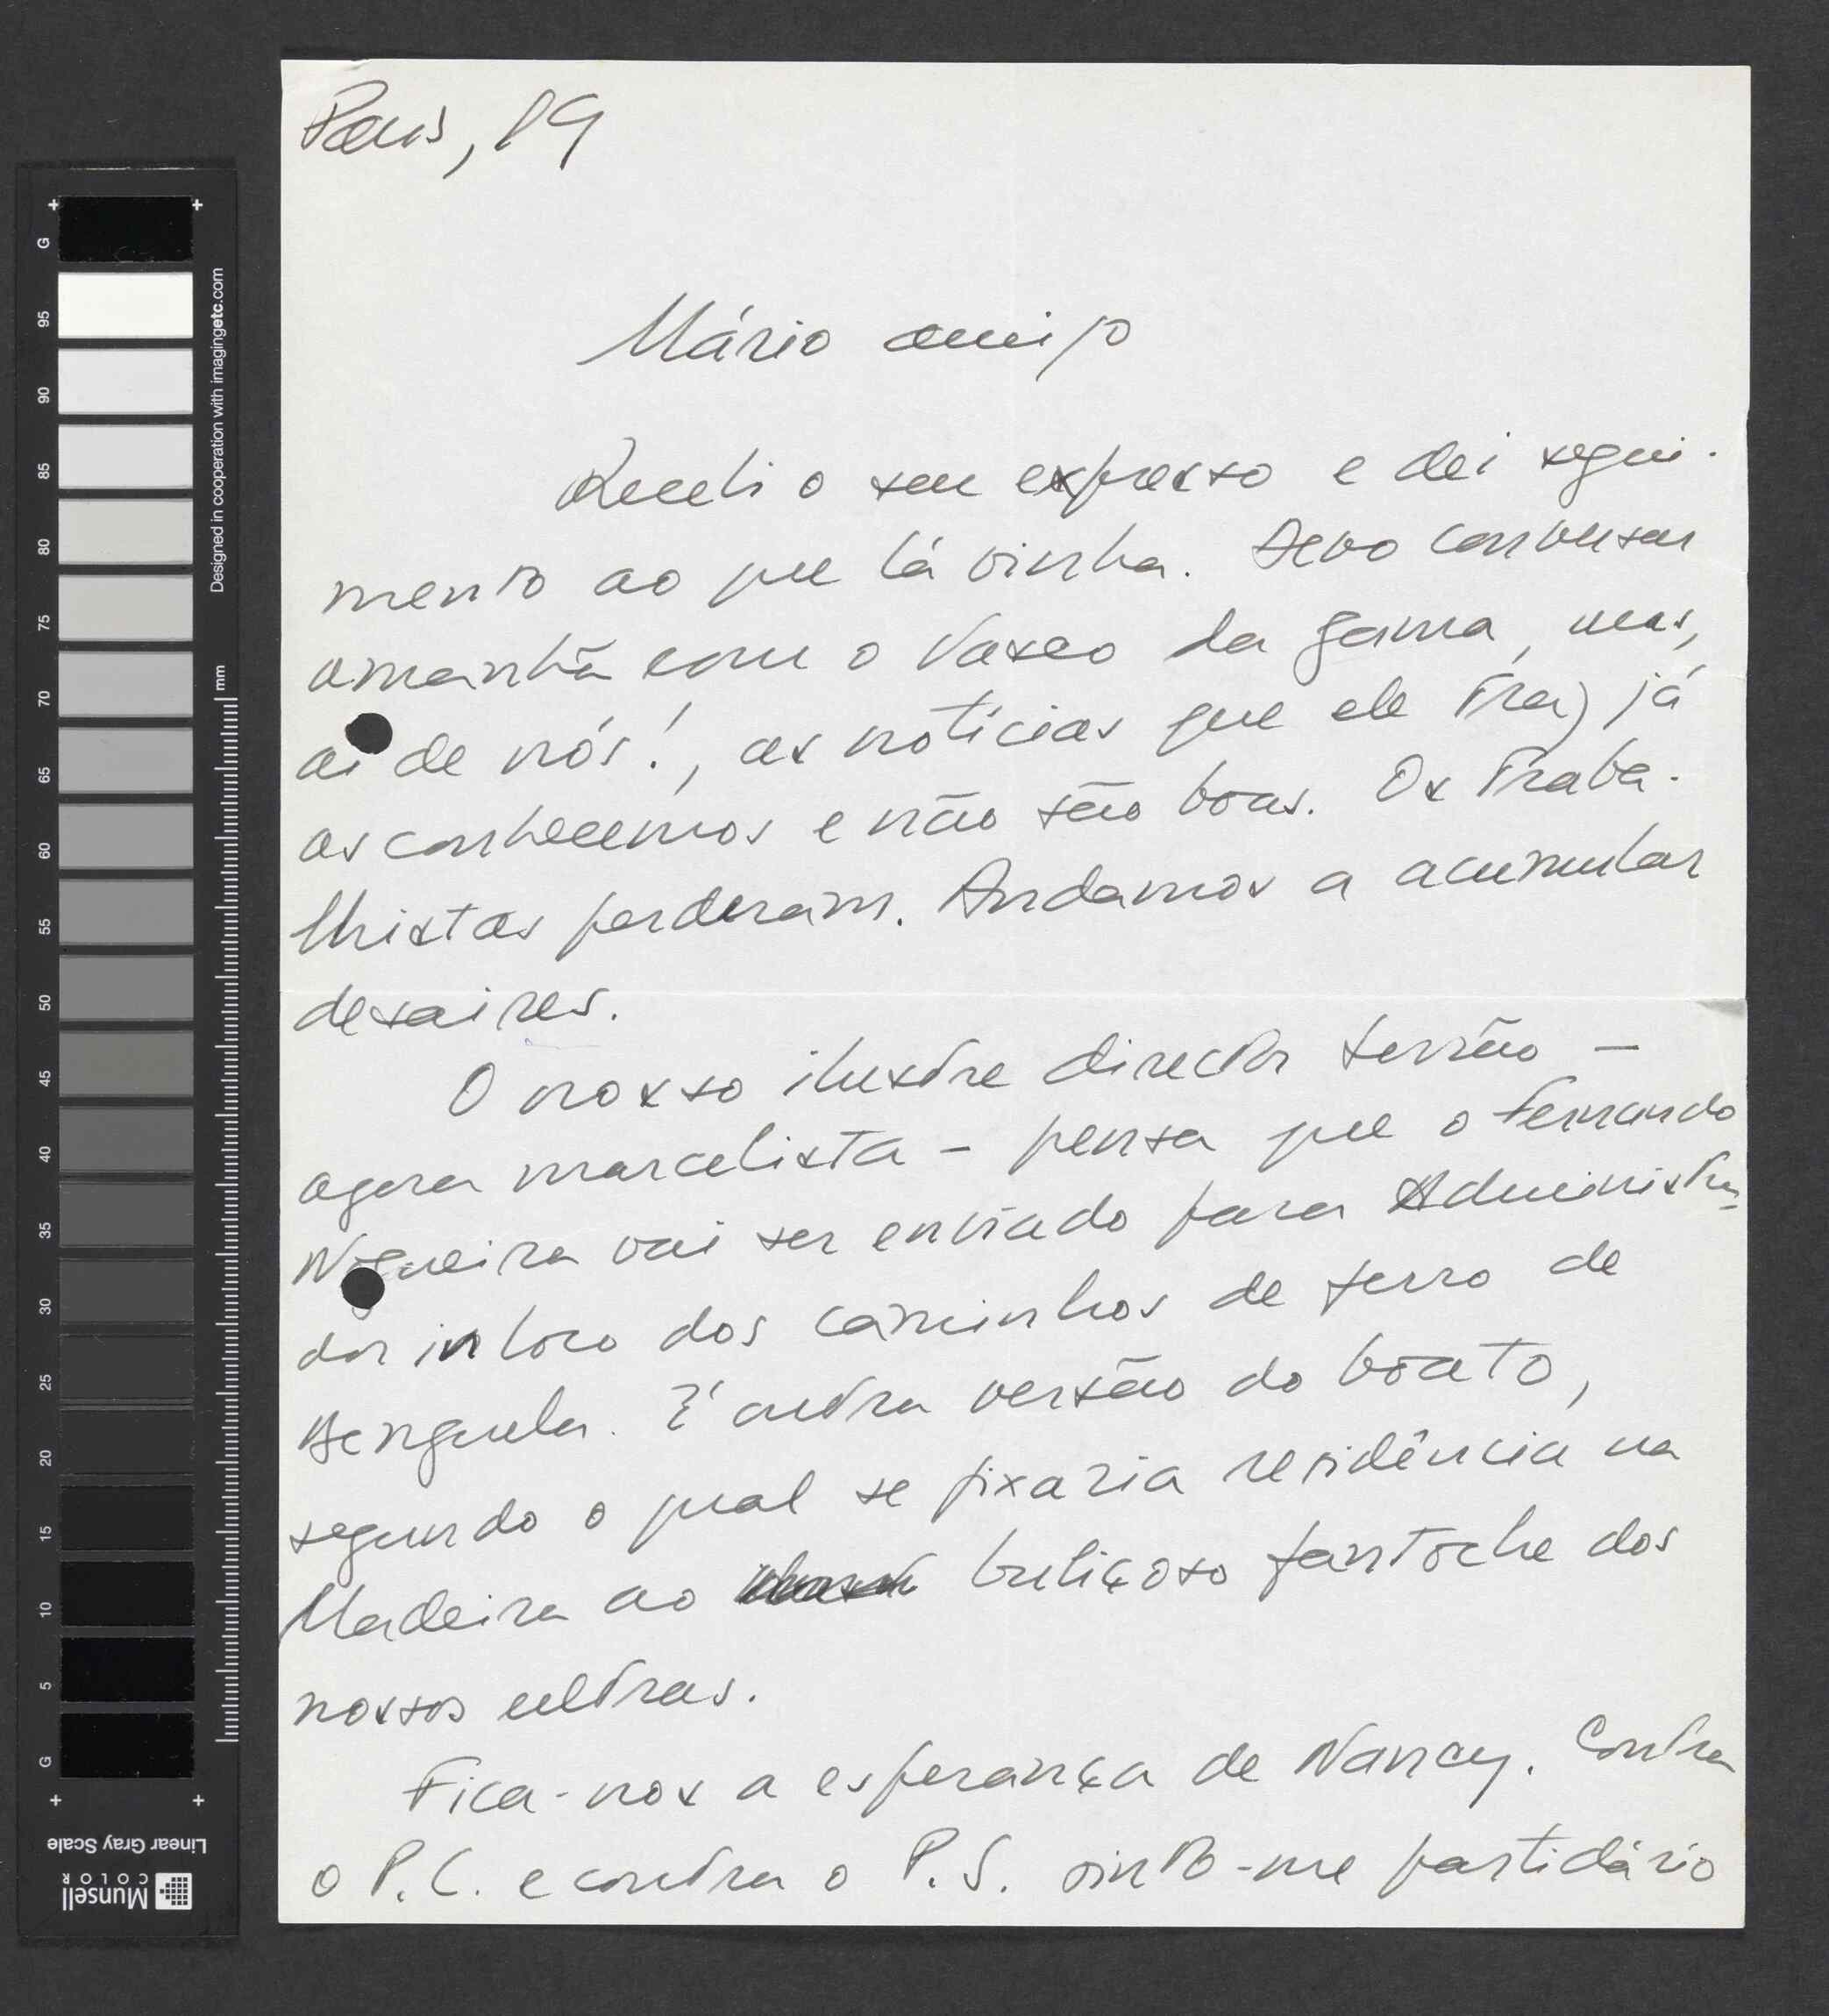 Paris, 19
Mário amigo
Recebi o seu expresso e dei segui-
mento ao que lá vinha. Devo conversar
amanhã com o Vasco da Gama, mas,
ai de nós!, as notícias que ele traz já
as conhecemos e não são boas. Os Traba-
lhistas perderam. Andamos a acumular
desaires.
O nosso ilustre director Serrão —
agora marcelista – pensa que o Fernando
Nogueira vai ser enviado para Administra-
dor in loco dos caminhos de ferro de
Benguela. É outra versão do boato,
segundo o qual se fixaria residência na
Madeira ao buliçoso fantoche dos
nossos ultras.
Fica-nos a esperança de Nancy. Contra
o P.C. e contra o P.S. sinto-me partidário
G
95
90
85
80
75
70
65
60
55
50
45
40
35
30
25
20
15
10
5
G
mm
Designed in cooperation with imagingetc.com
Linear Gray Scale
Munsell
COLOR